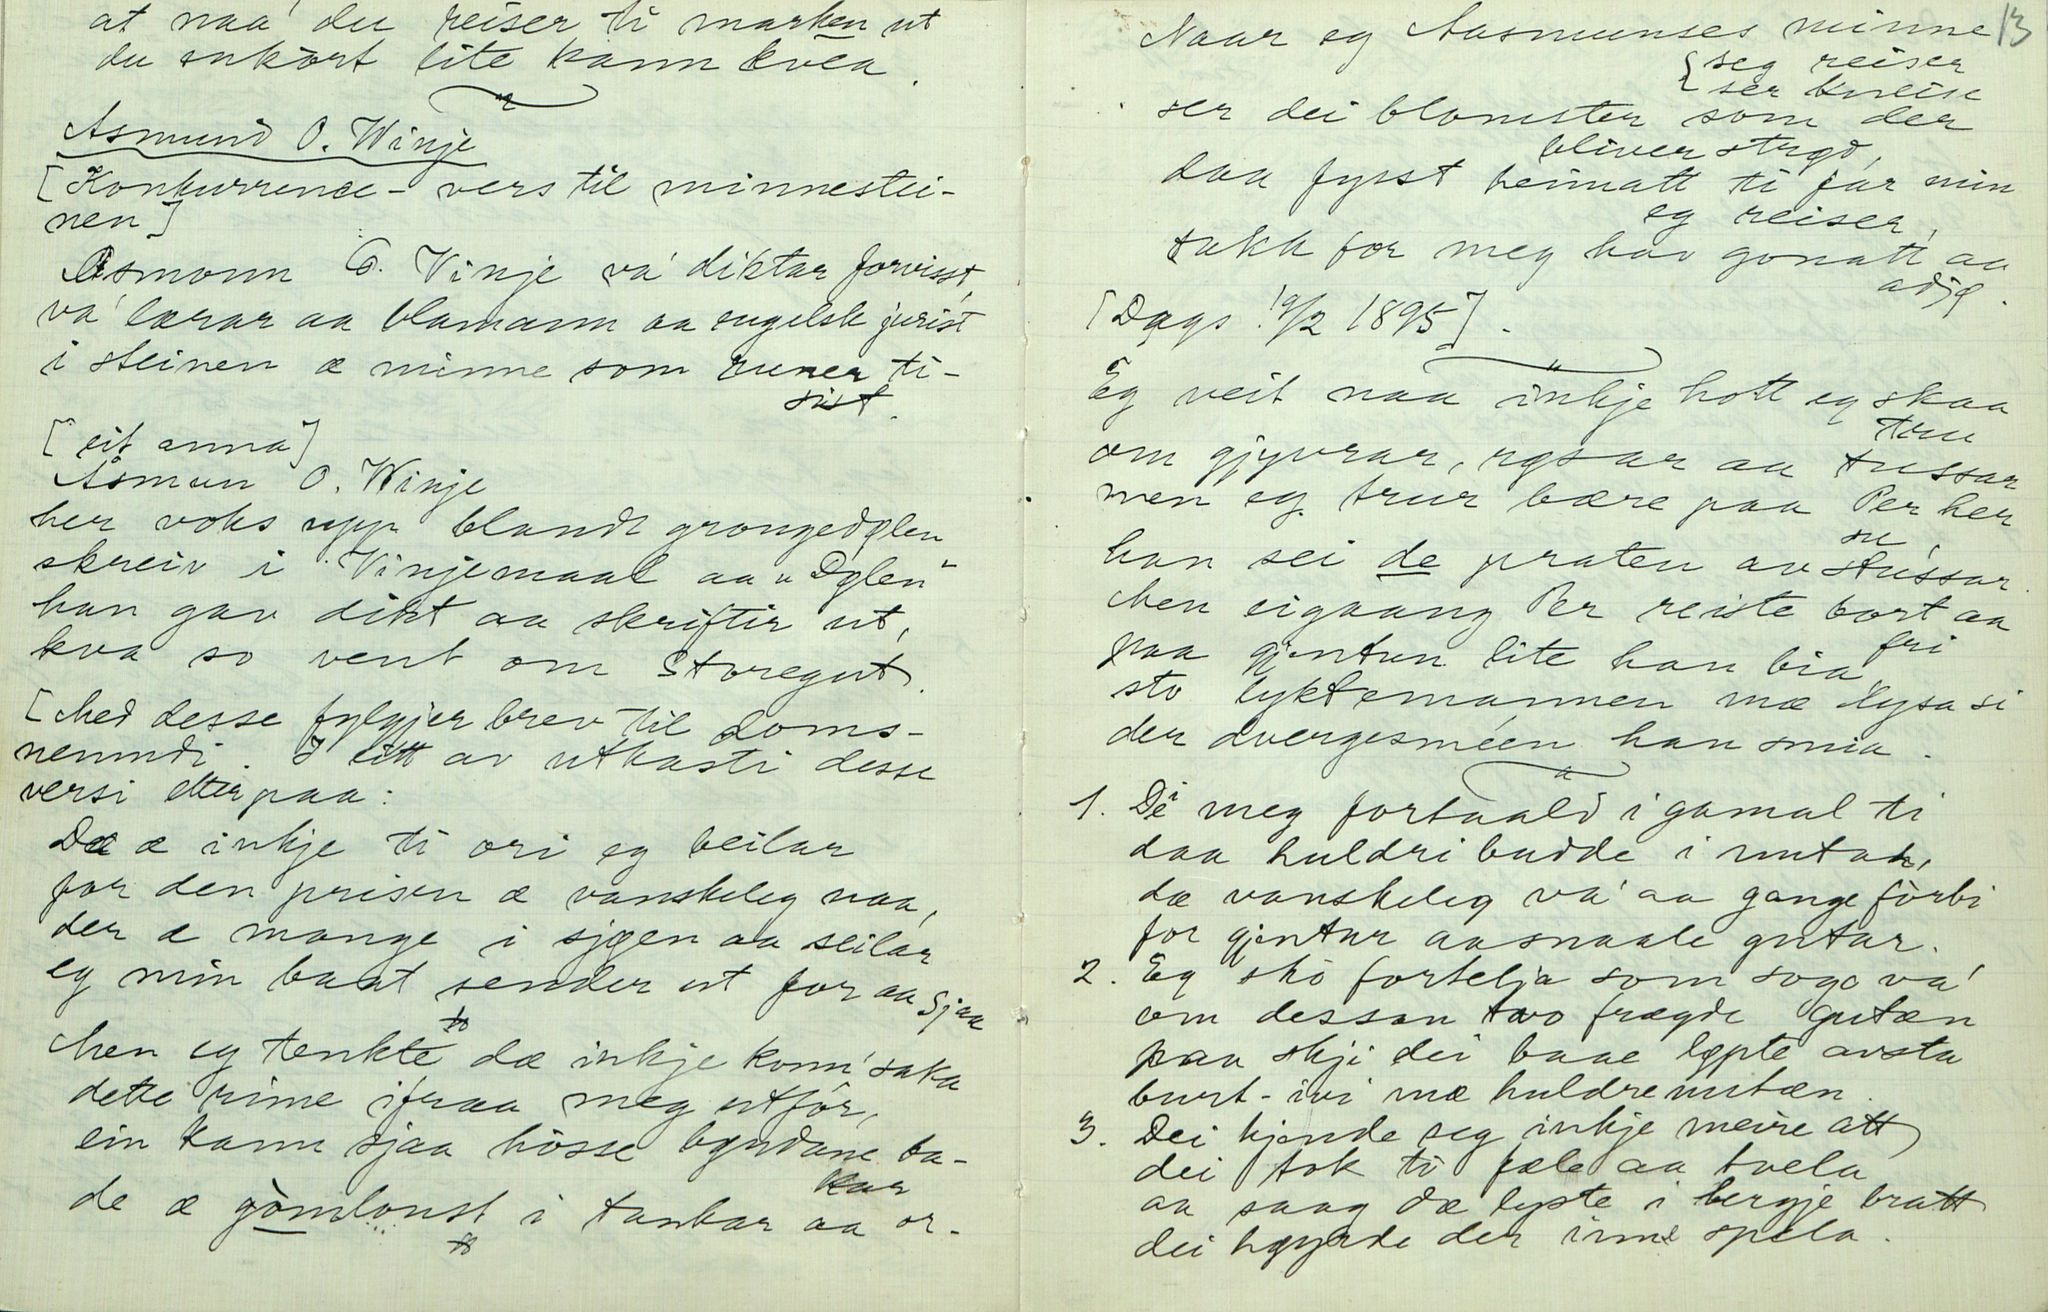 at naa du reiser ti marken ut
du snkort lite kann kvea.
Asmund O. Winje
[Konkurrence-vers til minnestei-
nen]
Asmonn O. Vinje va' diktar forvisst,
va' lærar aa blamann aa engelsk jurist
i steinen æ minne som runer ti-
sist.
[eit anna]
Åsmun O. Winje
her voks upp blandt grougedølen
skreiv i Vinjemaal aa "Dølen"
han gav dikt aa skriftir ut,
kva so vent om Storegut.
[Med desse fylgjer brev til doms-
nemndi. I eitt av utkasti desse
versi etterpaa:
Dæ æ inkje ti ori eg beilar
for den prisen æ vanskeleg naa,
der æ mange i sjøen aa seilar
eg min baat sender ut for aa sjaa
Men eg tenkte dæ inkje kom' saka
dette rime ifraa meg utfor,
ein kann sjaa hosse bøndane ba-
kar
de æ gomlonst i tankar aa or-
13
Naar eg Aasmunses minne
{seg reiser
ser kneise
ser dei blomster som der
bliver strød,
daa fysst heimatt ti far min
eg reiser,
takk for meg hav gonatt aa
adjø.
[Dags. 19/2 1895].
Eg veit naa inkje hott eg skaa
tru
om gjyvrar, rysar aa tussar
men eg trur bære paa Per her
su
han sei de praten av stussar.
Men eigaang Per reiste bort aa
fri
paa gjentun lite han bia
sto lyktemannen mæ lysa si
der dvergesméen han smia.
1. Dei meg fortaald i gamal ti
daa huldri budde i nutah,
dæ vanskeleg va' aa gange forbi
for gjentur aasnaale gutar.
2. Eg sko fortelja som sogo va'
om dessan two frægde gutæn
paa skji dei baae løpte avsta
burt-ivi mæ huldrenutæn.
3. Dei kjende seg inkje meire att
dei tok ti fæle aa tvela
aa saag dæ lyste i bergje bratt
dei høyrde der inne spela.